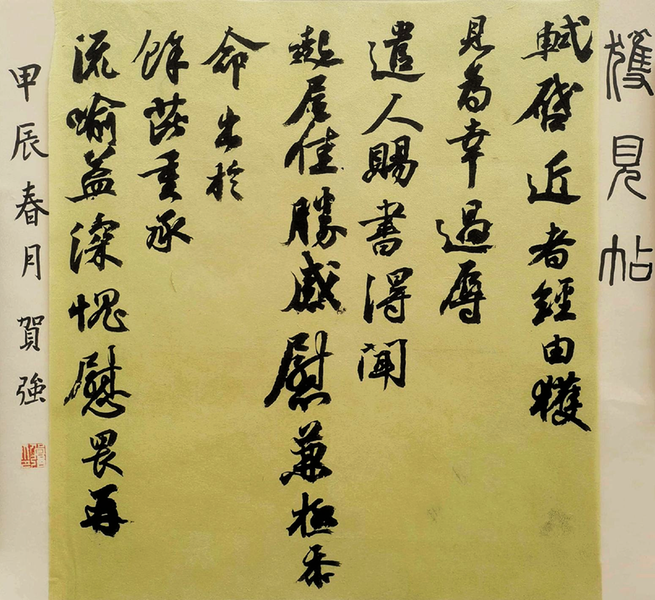 獲見帖
軾啓近者經由獲
見為幸過辱
遣人賜書得聞
起居佳勝感慰兼極忝
命出於
餘芘重承
流喻益深愧慰畏再
甲辰春月賀強